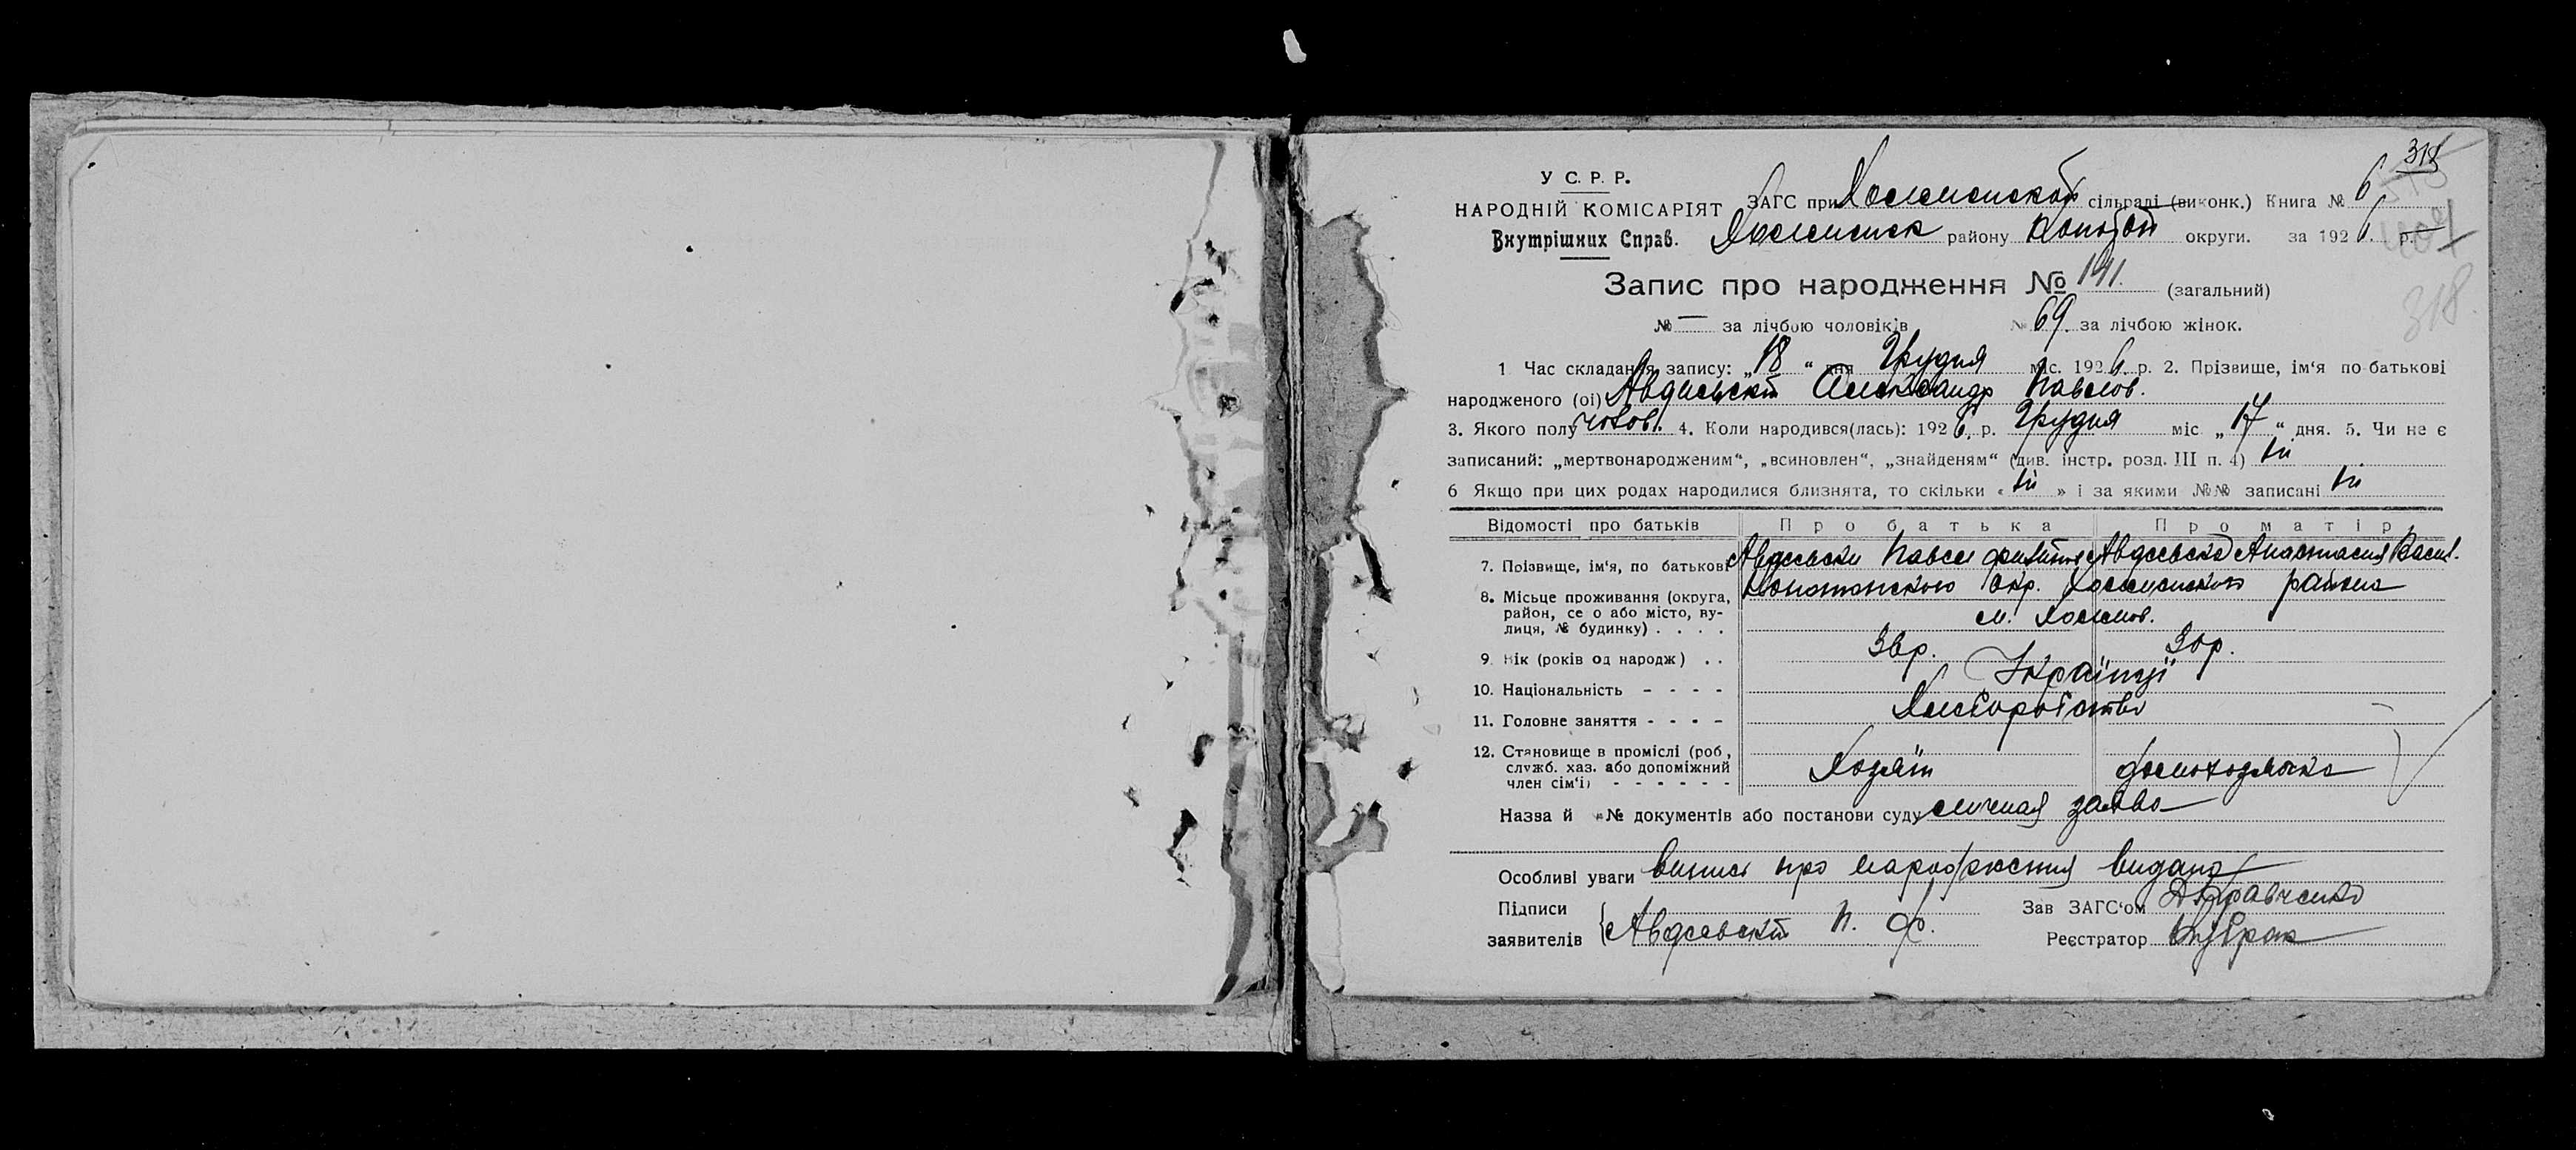 318
У С. Р. Р.
НАРОДНІЙ КОМІСАРІЯТ
Внутрішних Справ.
ЗАГС при сільраді (виконк.) Книга № 6.
району Конотоп округи. за 1926. р.
318.
Запис про народження № 191. (загальний)
№ — за лічбою чоловіків № 69. за лічбою жінок.
1 Час складання запису: „18“ дня Грудня міс. 1926. р. 2. Прізвище, ім‘я по-батькові
народженого (ої) Александр Павлов.
3. Якого полу чолов. 4. Коли народився(лась): 1926. р. Грудня міс „17“ дня. 5. Чи не є
записаний: „мертвонародженим“, „всиновлен“, „знайденям“ (див. інстр. розд. III п. 4) ні
6 Якщо при цих родах народилися близнята, то скільки « ні » і за якими №№ записані ні
Відомості про батьків Про батька Про матір
7. Прізвище, ім‘я, по батькові Павел Авдеевска Анастасия Васил.
8. Місьце проживання (округа, район, село або місто, вулиця, № будинку) . . . . Окр. района
м.
9. Вік (років од народж) . . 30р.
10. Національність - - - - Українці
11. Головне заняття - - - - Хлеборобство
12. Становище в промислі (роб, служб. хаз. або допоміжний член сім‘ї) - - - - - - Хозяїн домохозяйка
Назва й №№ документів або постанови суду личная заява
Особливі уваги випись про народження видана
Підписи заявителів { Авдеевский П. Ф.
Зав ЗАГС‘ом
Реєстратор